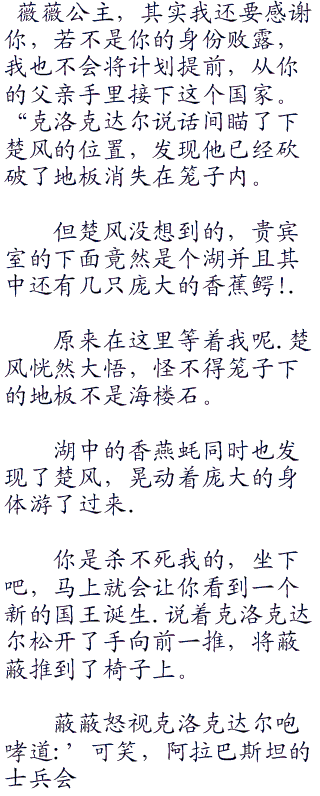 薇薇公主，其实我还要感谢
你，若不是你的身份败露，
我也不会将计划提前，从你
的父亲手里接下这个国家。
“克洛克达尔说话间瞄了下
楚风的位置，发现他已经砍
破了地板消失在笼子内。
但楚风没想到的，贵宾
室的下面竟然是个湖并且其
中还有几只庞大的香蕉鳄!.
原来在这里等着我呢.楚
风恍然大悟，怪不得笼子下
的地板不是海楼石。
湖中的香燕蚝同时也发
现了楚风，晃动着庞大的身
体游了过来.
你是杀不死我的，坐下
吧，马上就会让你看到一个
新的国王诞生.说着克洛克达
尔松开了手向前一推，将蔽
蔽推到了椅子上。
蔽蔽怒视克洛克达尔咆
哮道:’可笑，阿拉巴斯坦的
士兵会